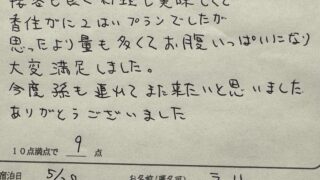 接客も良く料理も美味しくて
香住がに2はいプランでしたが
思ったより量も多くてお腹いっぱいになり
大変満足しました。
今度孫も連れてまた来たいと思いました
ありがとうございました
10点満点で 9 点
宿泊日 5/28 お名前(匿名可)